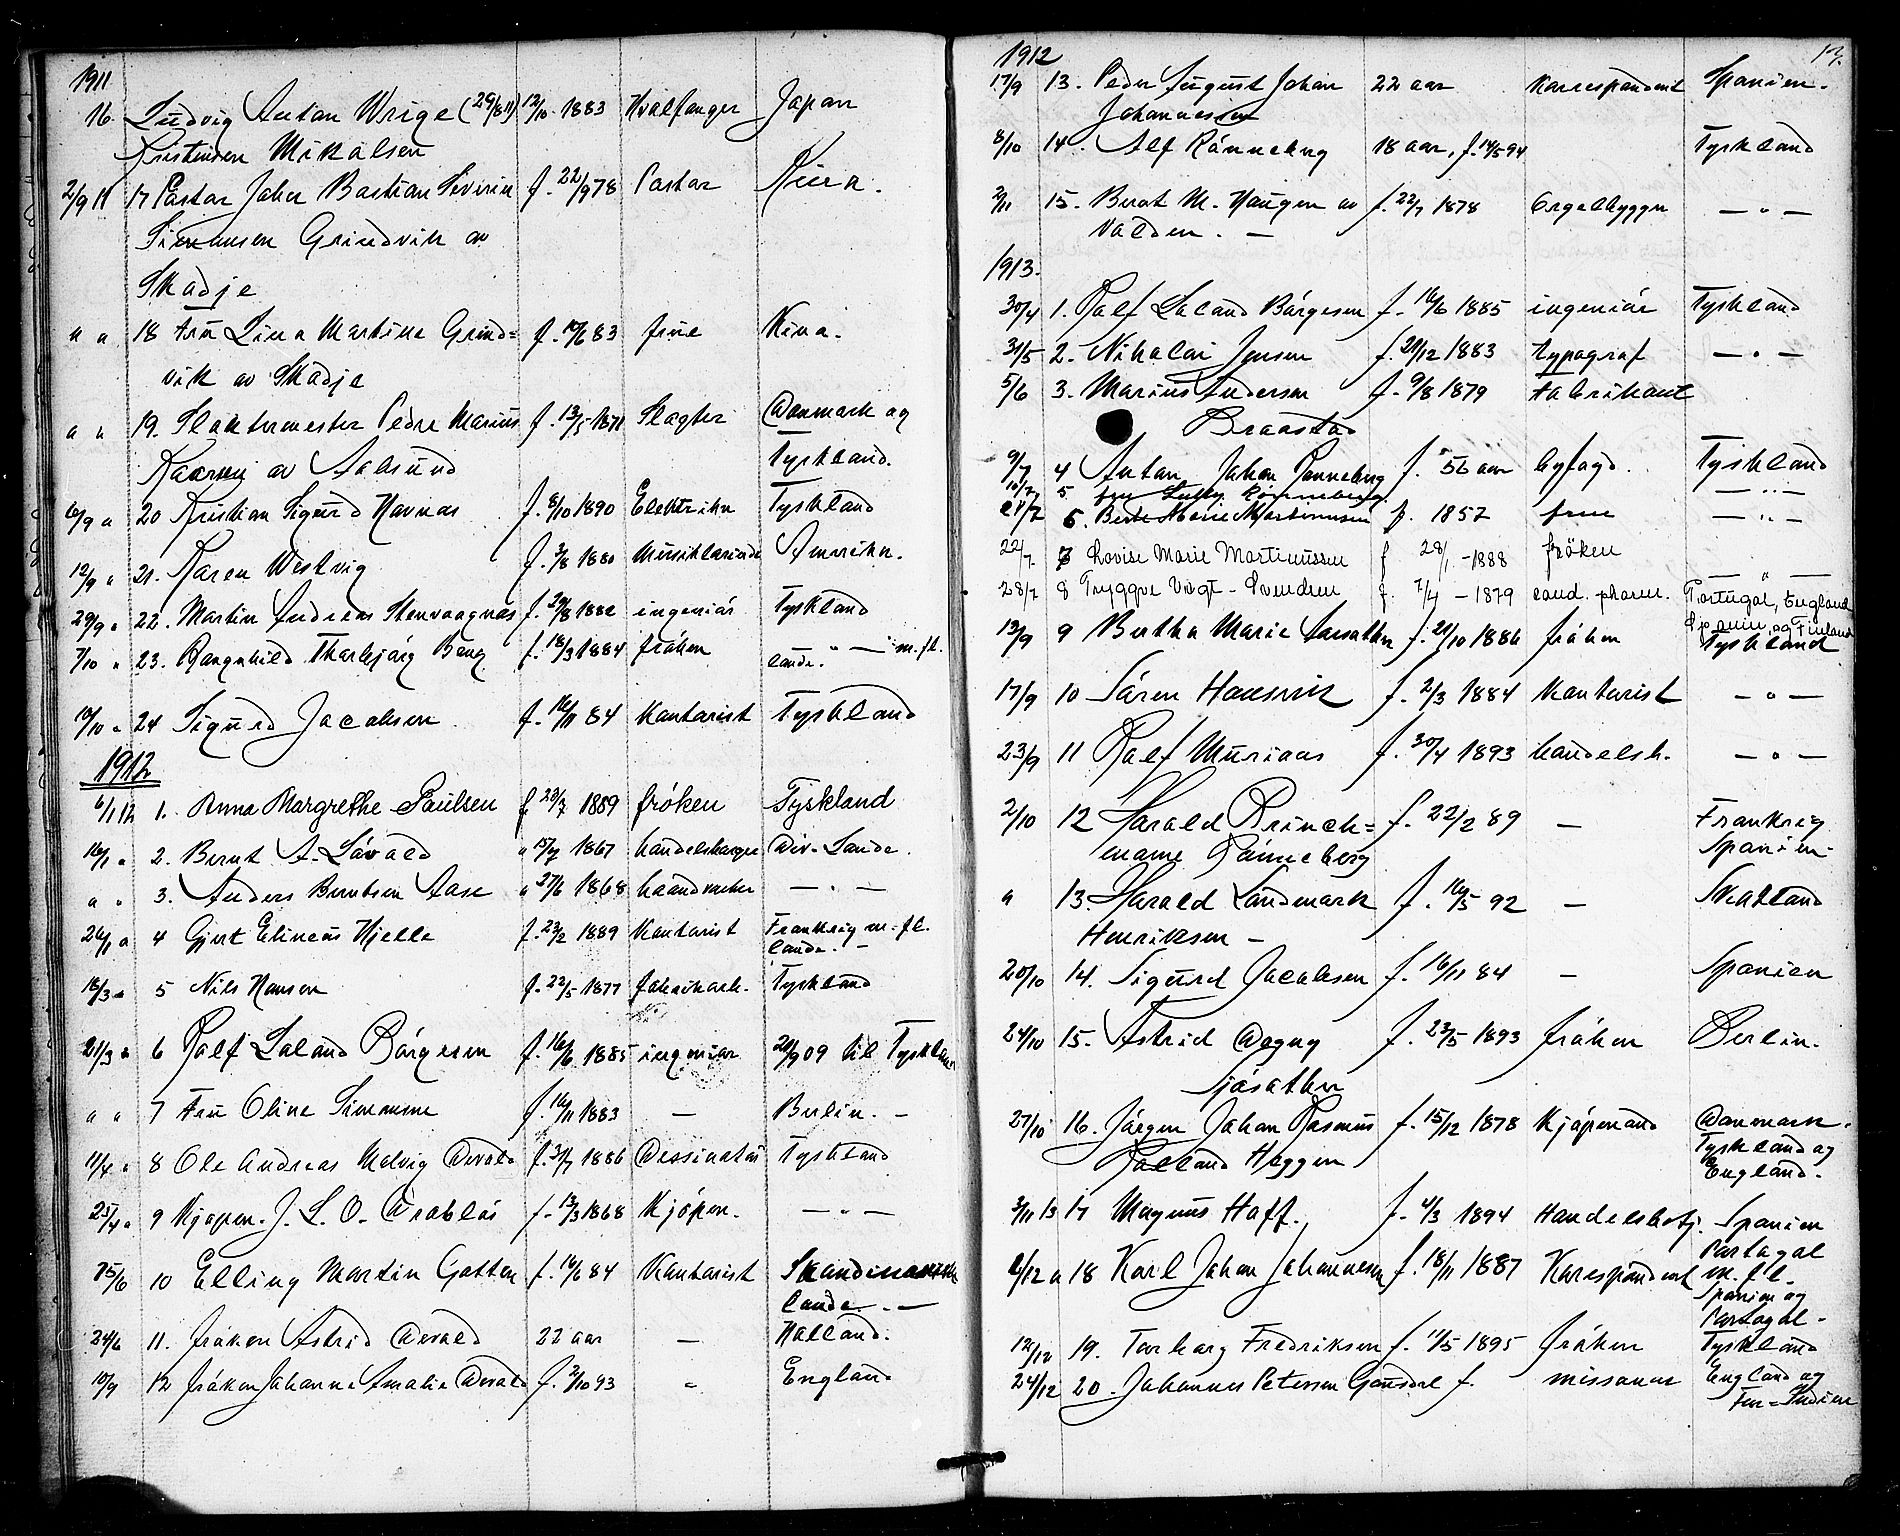 1911
16. Ludvig Antan Wrige (29/8 11) 12/10 1883 Hvalfanger Japan
Kristensen Mikalsen
2/9 11 17 Pastar Johen Bastian Severin f. 22/9 78 Pastar Kina.
Simonsen Grindvik av
Skadje
" " 18 Fru Lina Martine Grind= f. 10/6 83 frue Kina.
vik av Skadje
" " 19. Slaktermester Peder Marius f. 13/5 1871 Slagter Danmark og
av Aalsund Tyskland.
6/9 " 20 Kristian Sigurd Havnas f. 8/10 1890 Elektrike Tyskland
12/9 " 21. Karen Westvig f. 3/8 1880 Musiklærinde Amerika.
29/9 " 22. Martin Andreas Stenvaagnæs f. 29/8 1882 ingeniør Tyskland
7/10 " 23. Rangnhild Tharbjørg Bang f. 18/3 1884 frøken — " — m. fl.
lande.
10/10 " 24 Sigurd Jacabsen f. 16/11 84 Kantarist Tyskland
1912
6/1 12 1. Anna Margrethe Paulsen f 23/7 1889 frøken Tyskland
16/1 " 2. Bernt A. Løvald " 15/7 1867 handelsbarger Div. Lande.
" " 3. Anders Berntsen Aase " 27/6 1868 haandverker — " —
26/1 " 4 Gjert Elineus Hjelle f. 23/2 1889 Kantarist Frankrig m. fl.
lande. —
18/3 " 5 Nils Hansen f. 22/5 1877 Fabrikarb. Tyskland
21/3 " 6 Ralf Laland Børgesen f. 16/6 1885 ingeniør 20/9 09 til Tyskland
" " 7 Fru Oline Simonsen f. 16/11 1883 — Berlin. —
11/4 " 8 Ole Andreas Malvig Devald f. 31/7 1886 Dessinatør Tyskland
25/4 " 9 Kjøpm. J. L. O. Drabløs f. 13/3 1868 Kjøpm. — " —
25/6 10 Elling Martin Gotten f. 16/6 84 Kantarist Skandinaviske
lande. —
24/6 11. frøken Astrid Devald 22 aar — Halland.
10/9 12 frøken Johanne Amalie Devald f. 2/10 93 " England
1912 13.
17/9 13. Peder August Johan 22 aar Karrespandent Spanien.
Johannessen
8/10 14. Alf Rønneberg 18 aar, f. 14/5 94 Tyskland
2/11 15. Berot M. Haugen av f. 22/7 1878 Orgelbygger — " —
Valden. —
1913.
30/4 1. Ralf Laland Børgesen f. 16/6 1885 ingeniør Tyskland
31/5 2. Nikolai Jensen f. 21/12 1883 typograf — " —
5/6 3. Marius Andersen f. 9/8 1879 Fabrikant
Braastad
9/7 4 Antan Johan Rønneberg f. 56 aar byfogd. Tyskland
10/7 5 fru Lully Rønneberg — " —
21/7 6. Berte Marie Martinussen f. 1857 frue — " —
22/7 7 Lovise Marie Martinussen f 28/1 - 1888 frøken — " —
28/7 8 Tryggve Vogt - Svendsen f. 7/4 - 1879 cand. pharm. Portugal, England
Spanien og Finland
13/9 9 Bertha Marie f. 21/10 1886 frøken Tyskland
17/9 10 Søren Hansvik f. 2/3 1884 Kantarist — " —
23/9 11 Ralf Muriaas f. 30/4 1893 handelsb. — " —
2/10 12 Harald Brinch= f. 22/2 89 — Frankrig
mame Rønneberg Spanien
" 13. Harald Landmark f. 16/5 92 — Skatland
Henriksen —
20/10 14. Sigurd Jacabsen f. 16/11 84 — Spanien
24/10 15. Astrid Dagny f. 23/5 1893 frøken Berlin.
Sjøsather
27/10 16. Jørgen Johan Rasmus f. 15/12 1878 Kjøpmand Danmark.
Ralland Heggen Tyskland og
England.
3/11 13 17 Magnus Hoff. f. 4/3 1894 Handelsbetj. Spanien
Partagal
2/12 " 18 Karl Johan Johannesen f. 18/11 1887 Karespandent m. fl.
Spanien og
Partagal.
12/12 19. Torbarg Fredriksen f. 11/5 1895 frøken Tyskland
24/12 20. Johannes Petersen Gausdal f. missanær England og
For-Indien